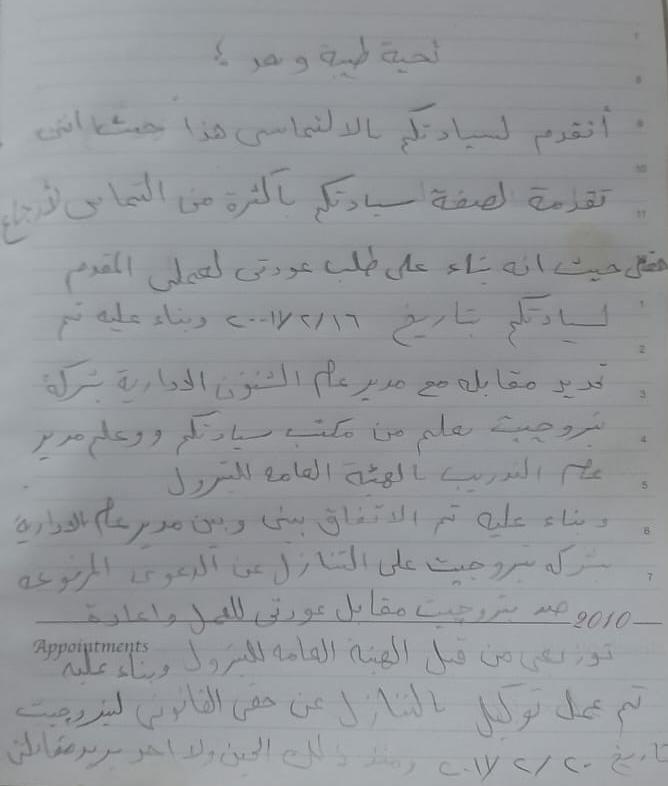 تحية طيبة وبعد ؛
7
8
أتقدم لسيادتكم بالالتماسى هذا حيث اننى
9
تقدمة لصفة سيادتكم بأكثرة من التماس لأرجاع
10
11
حقى حيث انه بناء على طلب عودتى لعملى المقدم
لسيادتكم بتاريخ ٢٠٠١٧/٢/١٦ وبناء عليه تم
1
2
تحديد مقابله مع مدير عام الشئون الادارية بشركة
3
بتروجيت بعلم من مكتب سيادتكم ووعلم مدير
4
عام التدريب بالهيئة العامه للبترول
5
وبناء عليه تم الاتفاق بينى وبين مدير عام الادارية
6
بشركه بتروجيت على التنازل عن الدعوى المرفوعه
7
ضد بتروجيت مقابل عودتى للعمل واعادة
2010
Appointments
توزيعى من قبل الهيئة العامه للبترول وبناء عليه
تم عمل توكيل بالتنازل عن حقى القانونى لبتروجيت
تاريخ ٢٠١٧/٢/٢٠ ومنذ ذلك الحين ولا احد يريد مقابلتى